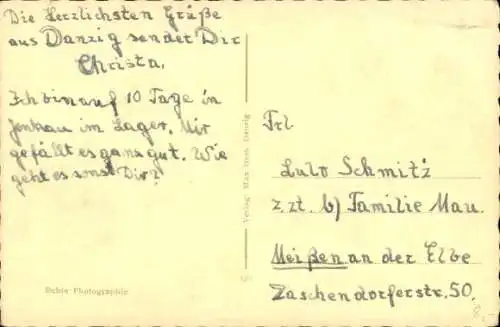 Die Herzlichsten Grüße
aus Danzig sendet Dir
Christa.
Ich bin auf 10 Tage in
Jenkau im Lager. Mir
gefällt es ganz gut. Wie
geht es sonst Dir?
Echte Photographie
Verlag: Max Danzig
Frl
Lulo Schmitz
z.zt. b/ Familie Mau.
Meißen an der Elbe
Zaschendorferstr. 50.